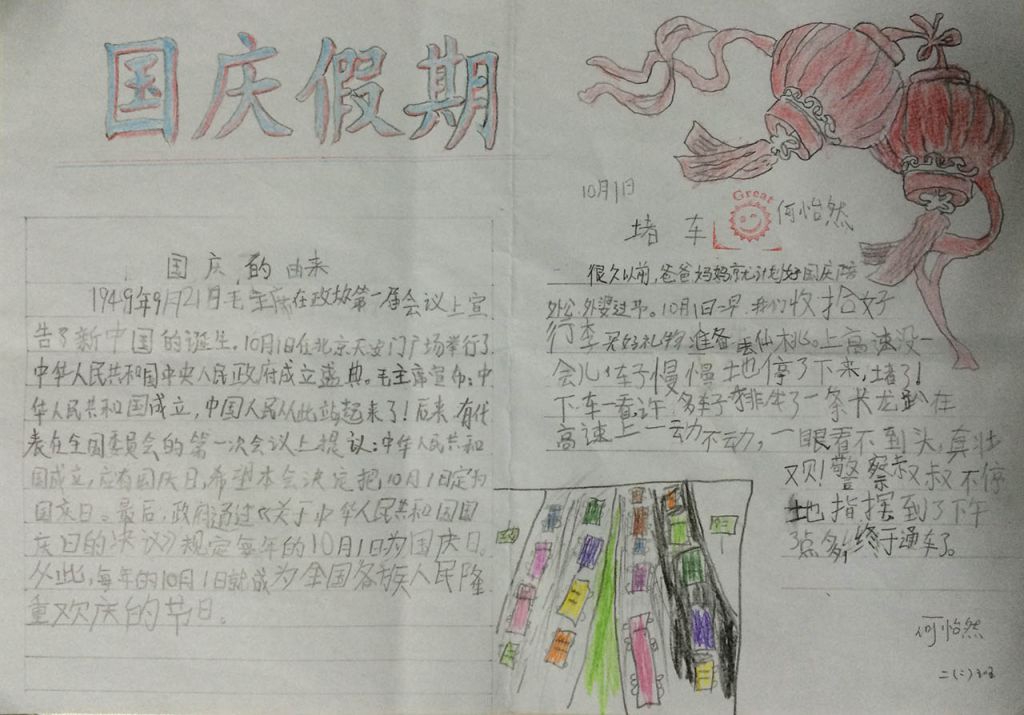 国庆假期
国庆的由来
1949年9月21日毛主席在政协第一届会议上宣
告了新中国的诞生。10月1日在北京天安门广场举行了
中华人民共和国中央人民政府成立盛典。毛主席宣布：中
华人民共和国成立，中国人民从此站起来了！后来，有代
表在全国委员会的第一次会议上提议：中华人民共和
国成立，应有国庆日，希望本会决定把10月1日定为
国庆日。最后，政府通过《关于中华人民共和国国
庆日的决议》规定每年的10月1日为国庆日。
从此，每年的10月1日就成为全国各族人民隆
重欢庆的节日。
10月1日
Great
堵车 何怡然
很久以前，爸爸妈妈就计划好国庆陪
外公外婆过节。10月1日一早，我们收拾好
行李买好礼物准备去仙桃。上高速没一
会儿，车子慢慢地停了下来，堵了！
下车一看许多车子排生了一条长龙趴在
高速上一动不动，一眼看不到头，真壮
观！警察叔叔不停
地指挥到了下午
3点多终于通车了。
何怡然
二（二）班